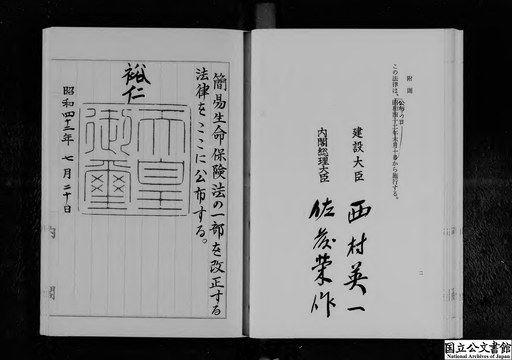 附則
この法律は、公布の日から施行する。
建設大臣　西村英一
内閣総理大臣　佐藤榮作
二
簡易生命保険法の一部を改正する
法律をここに公布する。
裕仁
天皇
御璽
昭和四十三年七月二十日
内閣
国立公文書館
National Archives of Japan